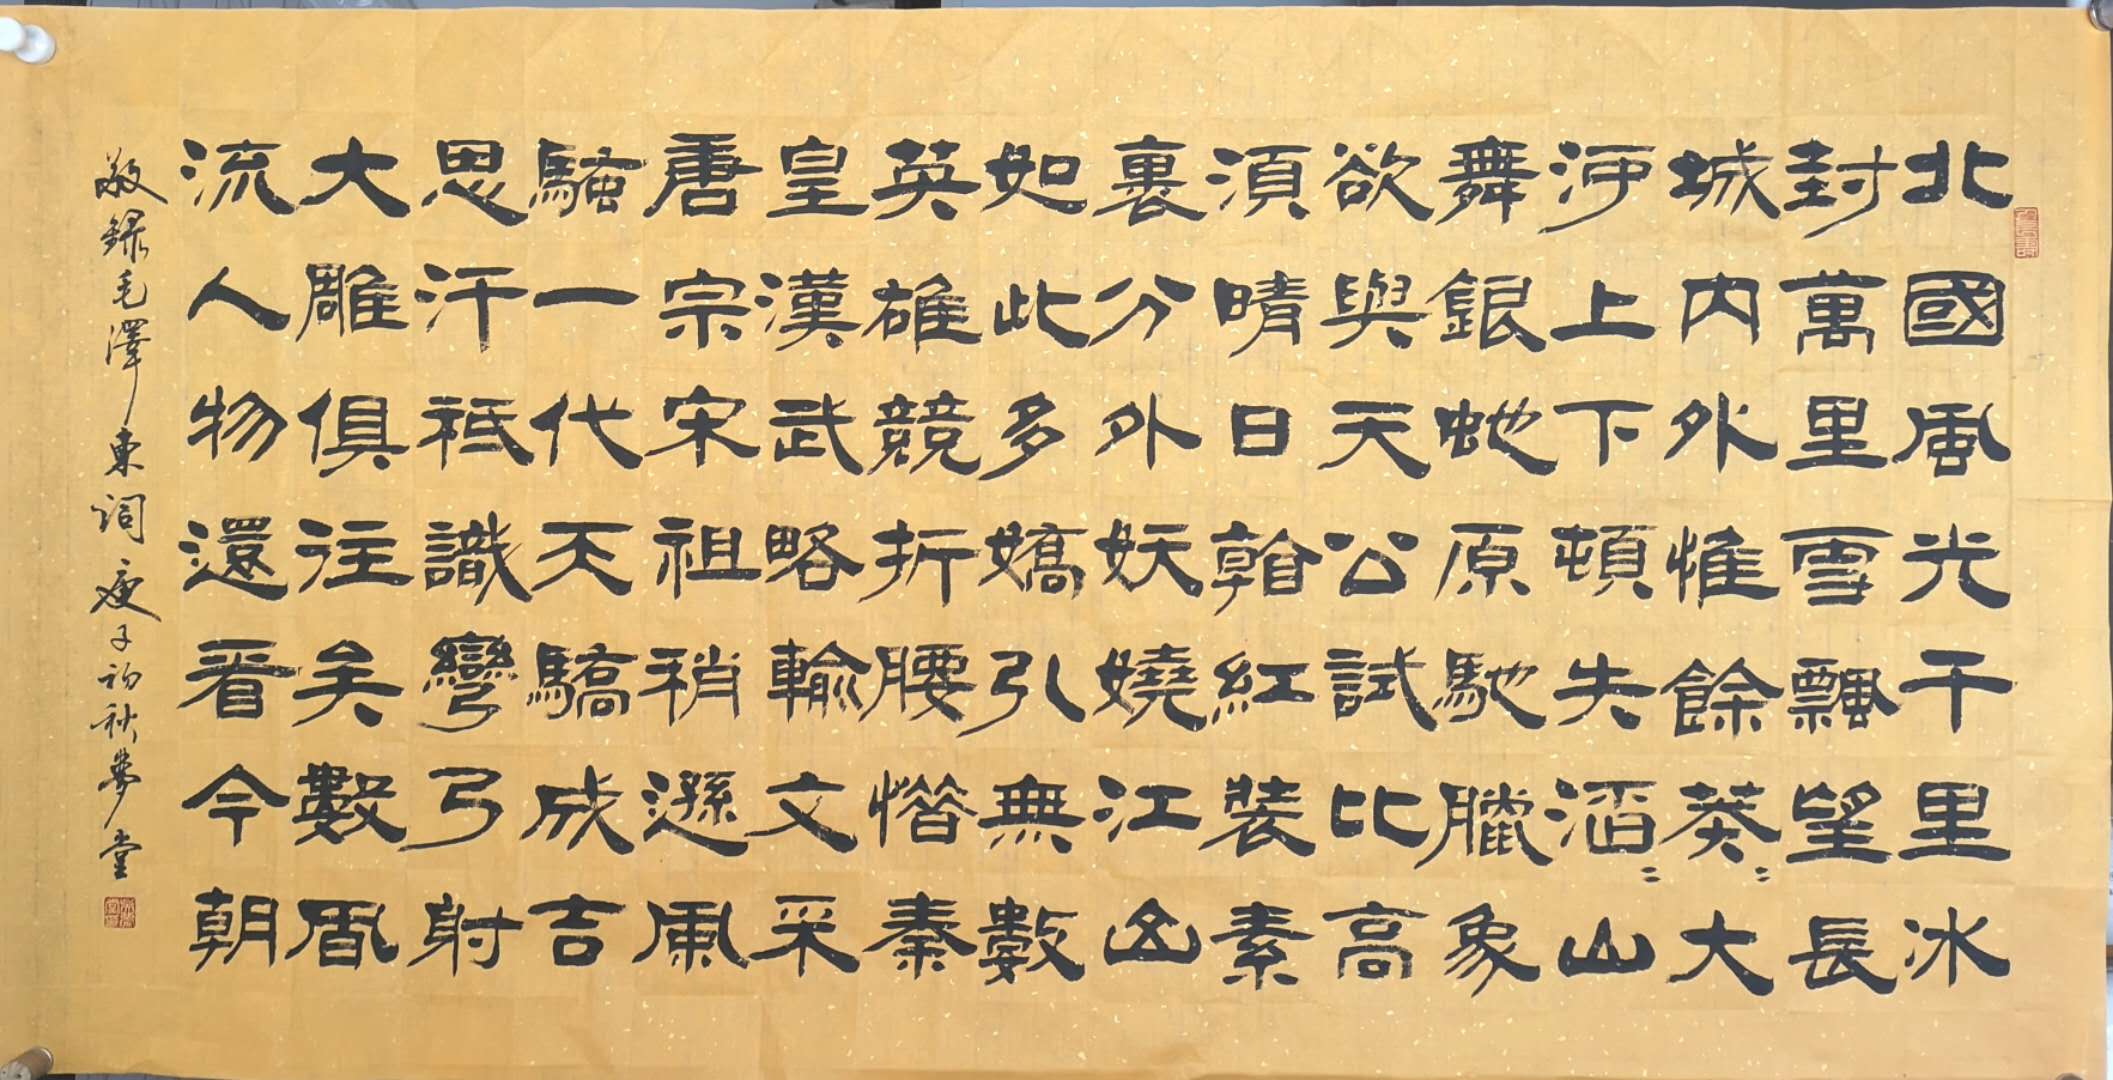 北國風光千里冰
封萬里雪飄望長
城內外惟餘莽〻大
河上下頓失滔〻山
舞銀虵原馳臘象
欲與天公試比高
須晴日看紅裝素
裹分外妖嬈江山
如此多嬌引無數
英雄競折腰惜秦
皇漢武略輸文采
唐宗宋祖稍遜風
騷一代天驕成吉
思汗祗識彎弓射
大雕俱往矣數風
流人物還看今朝
敬錄毛澤東詞庚子初秋夢堂